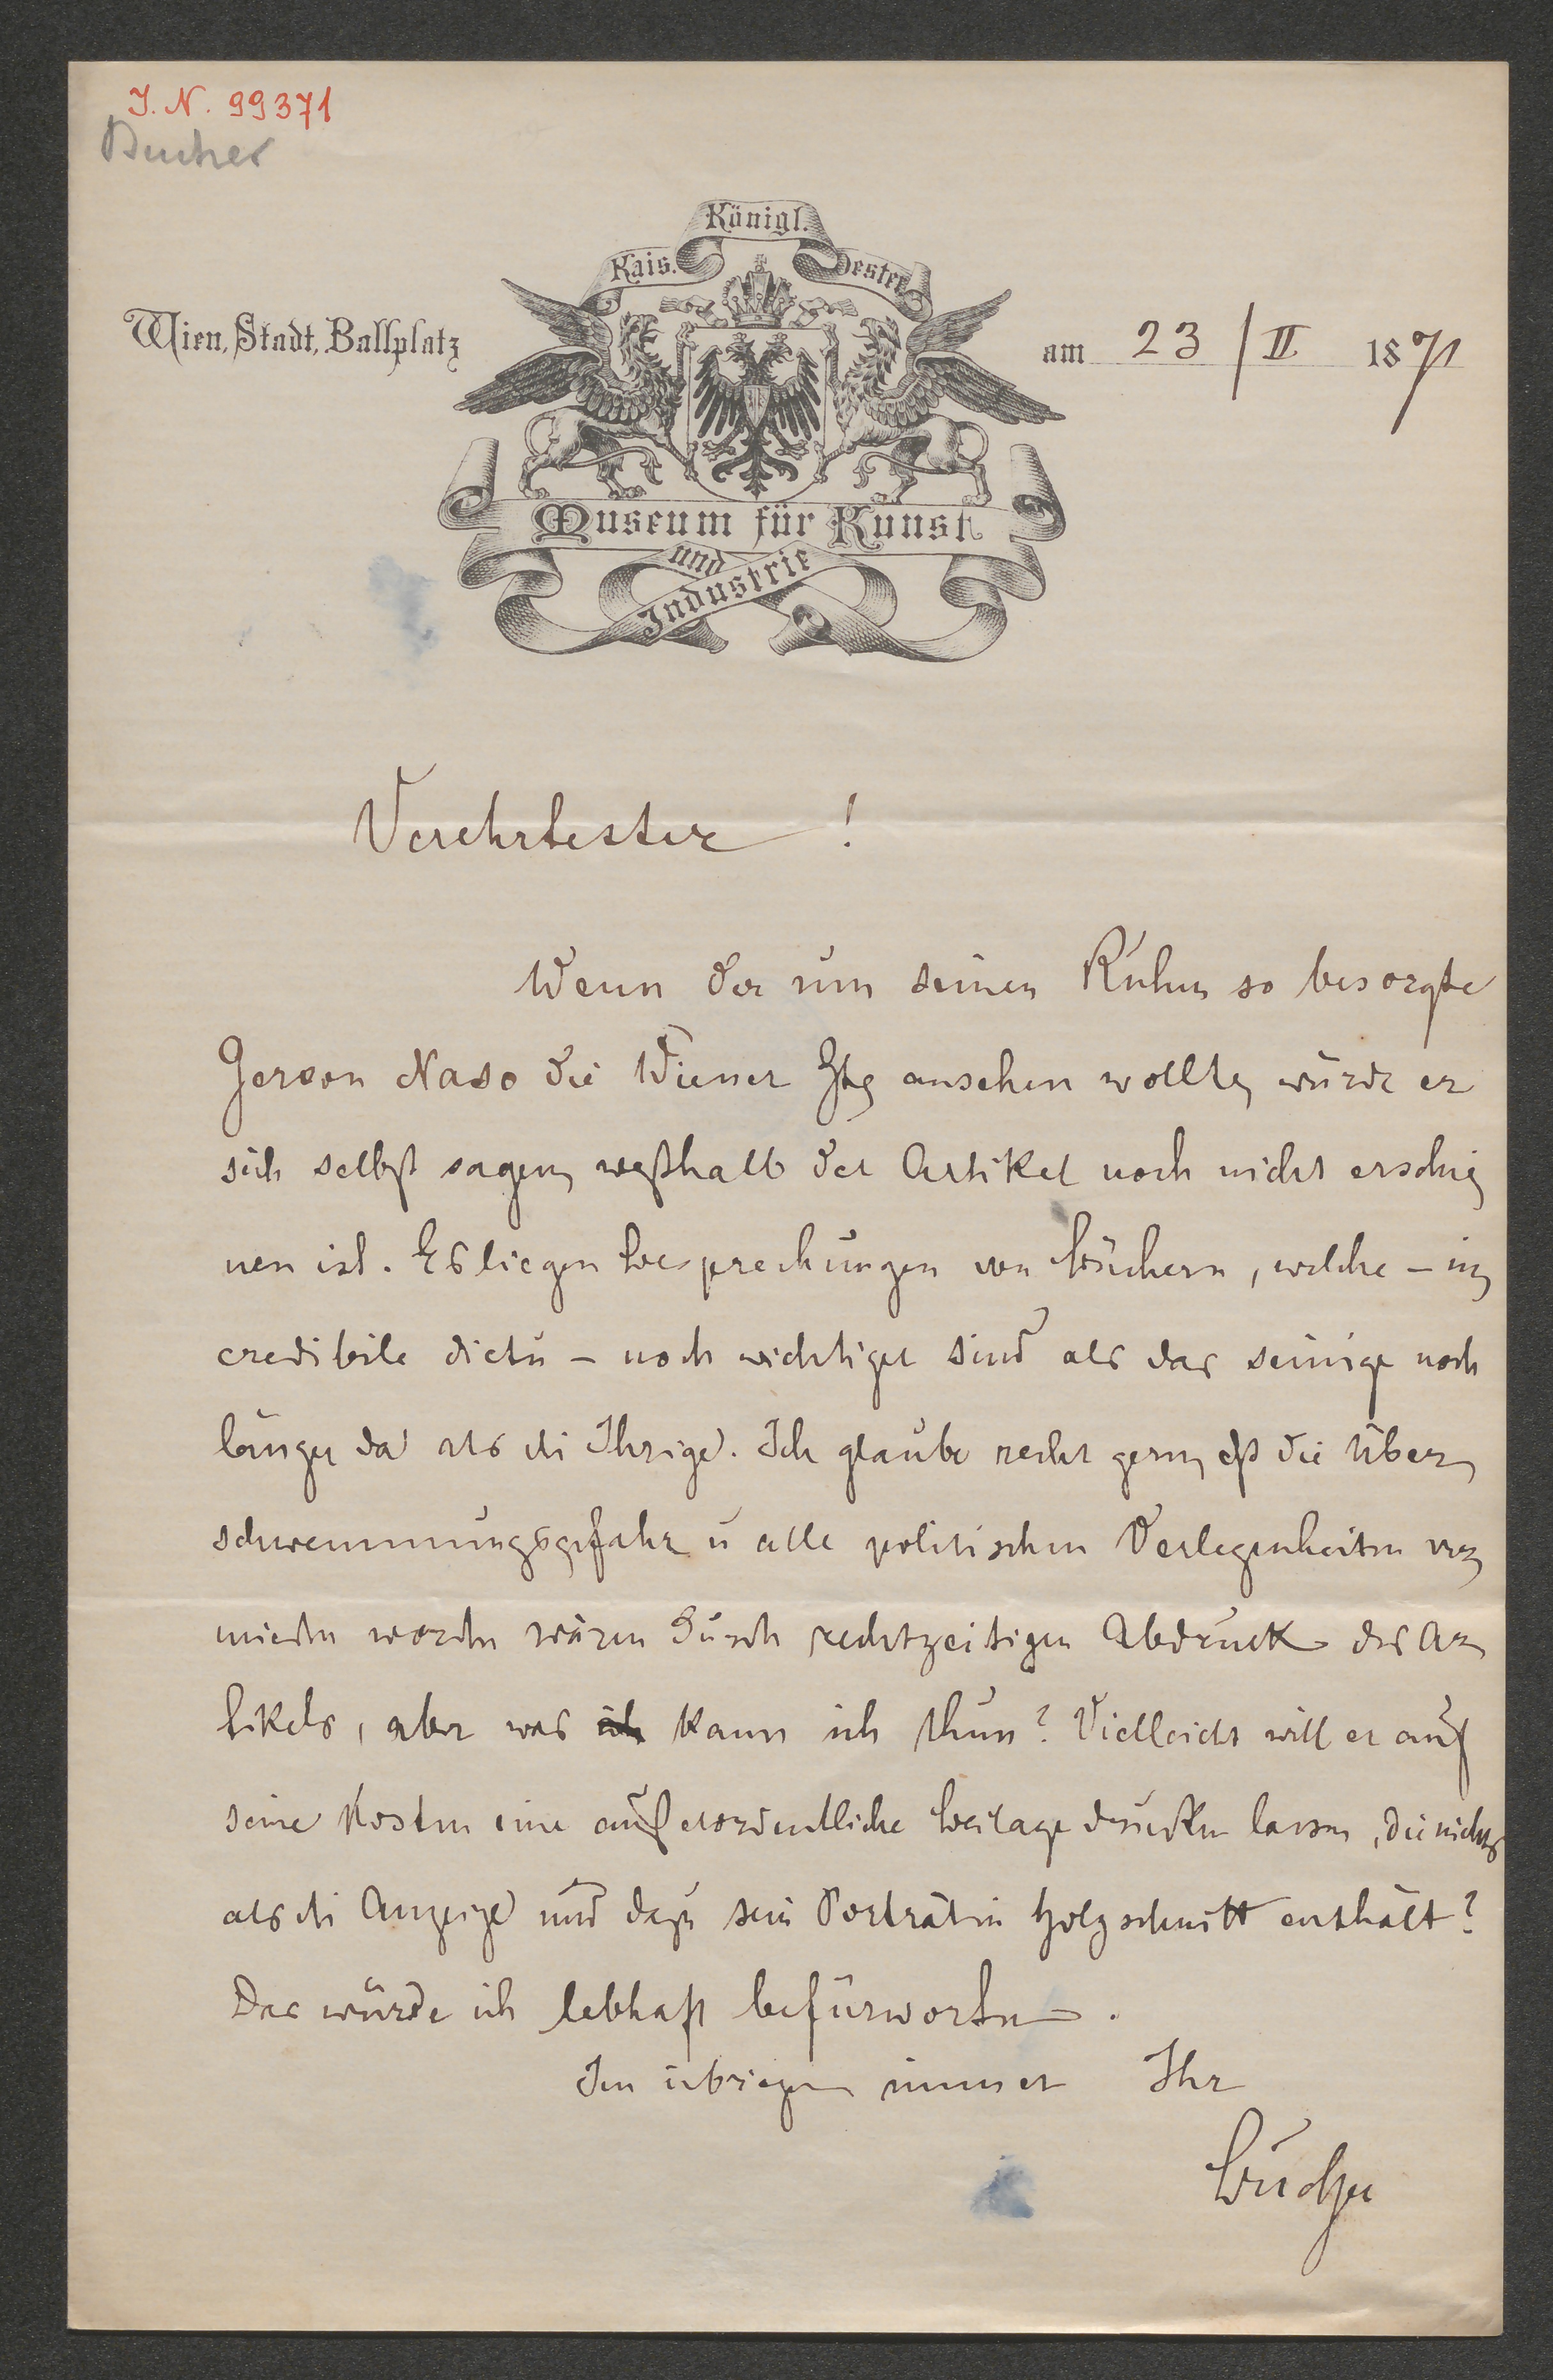 I. N. 99371
Bucher
Kais. Königl. Oester.
Wien, Stadt, Ballplatz
am 23/II 1871
Museum für Kunst
und
Industrie
Verehrtester!
Wenn der um seinen Ruhm so besorgte
Gerson Naso die Wiener Ztg ansehen wollte, würde er
sich selbst sagen, weßhalb der Artikel noch nicht erschie
nen ist. Es liegen Besprechungen von Büchern, welche – in
credibile dictu – noch wichtiger sind als das seinige noch
länger da als die Ihrige. Ich glaube recht gern, dß die Über
schwemmungsgefahr u alle politischen Verlegenheiten ver
mieden worden wären durch rechtzeitigen Abdruck des Ar
tikels, aber was ich kann ich thun? Vielleicht will er auf
seine Kosten eine außerordentliche Beilage drucken lassen, die nichts
als die Anzeige und dazu sein Porträt in Holzschnitt enthält?
Das würde ich lebhaft befürworten.
Im übrigen immer Ihr
Bucher